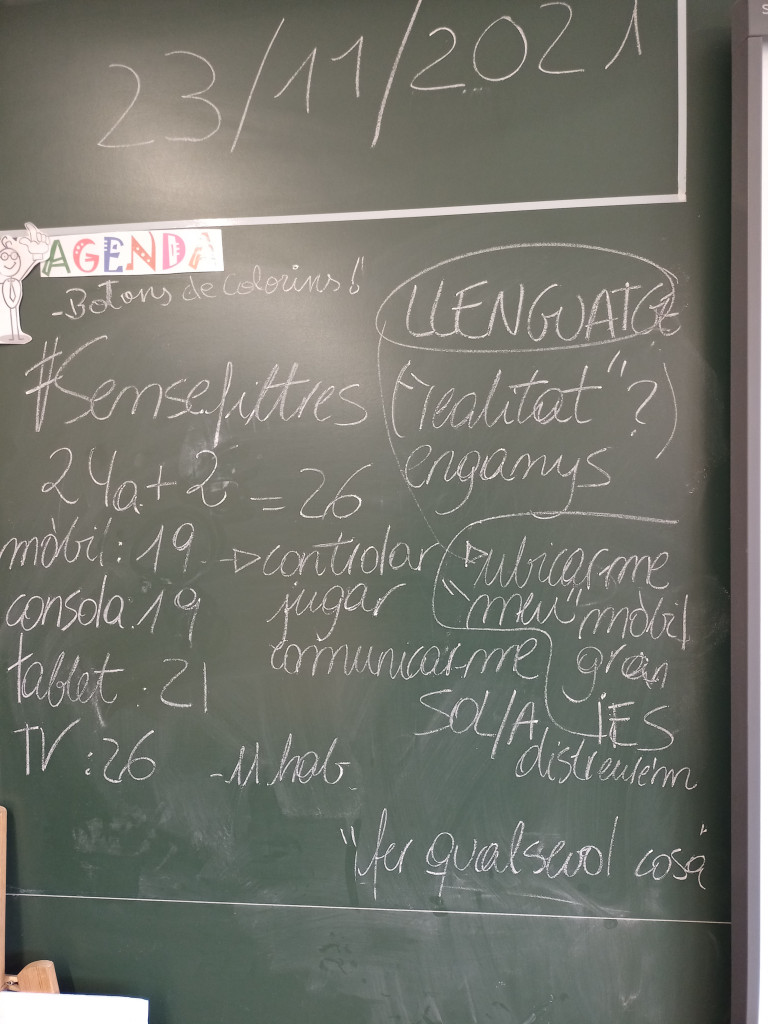 23/11/2021
AGENDA
-Botons de colorins!
LLENGUATGE
#Sensefiltres ("realitat"?)
enganys
24a + 2 = 26
mòbil: 19 → controlar
consola: 19 jugar
tablet: 21 comunicar-me
TV: 26 -11 hab.
ubicar-me
"meu" mòbil
gran
SOL/A IES
distreure'm
"fer qualsevol cosa"